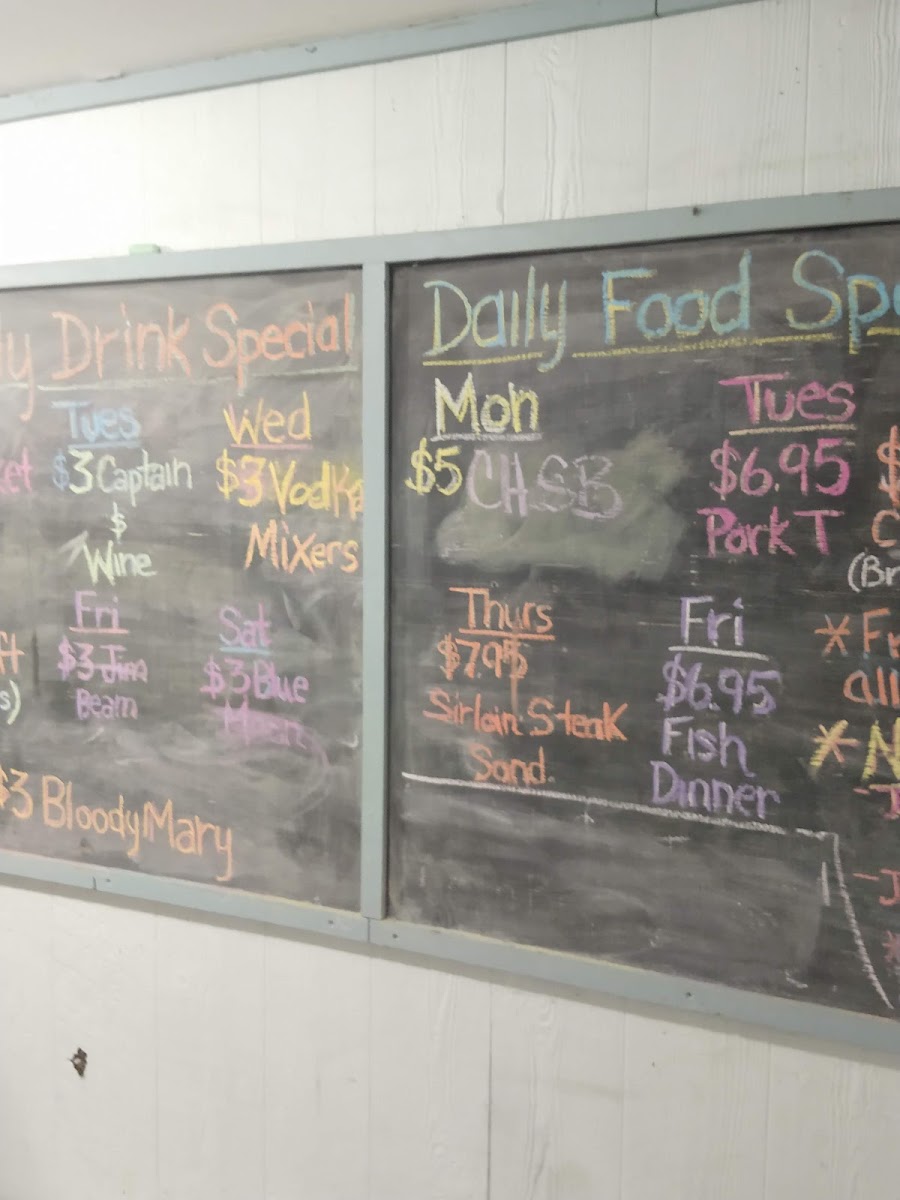 ly Drink Special
Tues
$3 Captain
&
Wine
Wed
$3 Vodka
Mixers
ket
Fri
$3 Jim
Beam
Sat
$3 Blue
Moon
ft
s)
$3 Bloody Mary
Daily Food Spe
Mon
$5 CH.SB
Tues
$6.95
Pork T
$
C
(Br
Thurs
$7.95
Sirloin Steak
Sand.
Fri
$6.95
Fish
Dinner
* Fr
all
* N
- J
- J
*